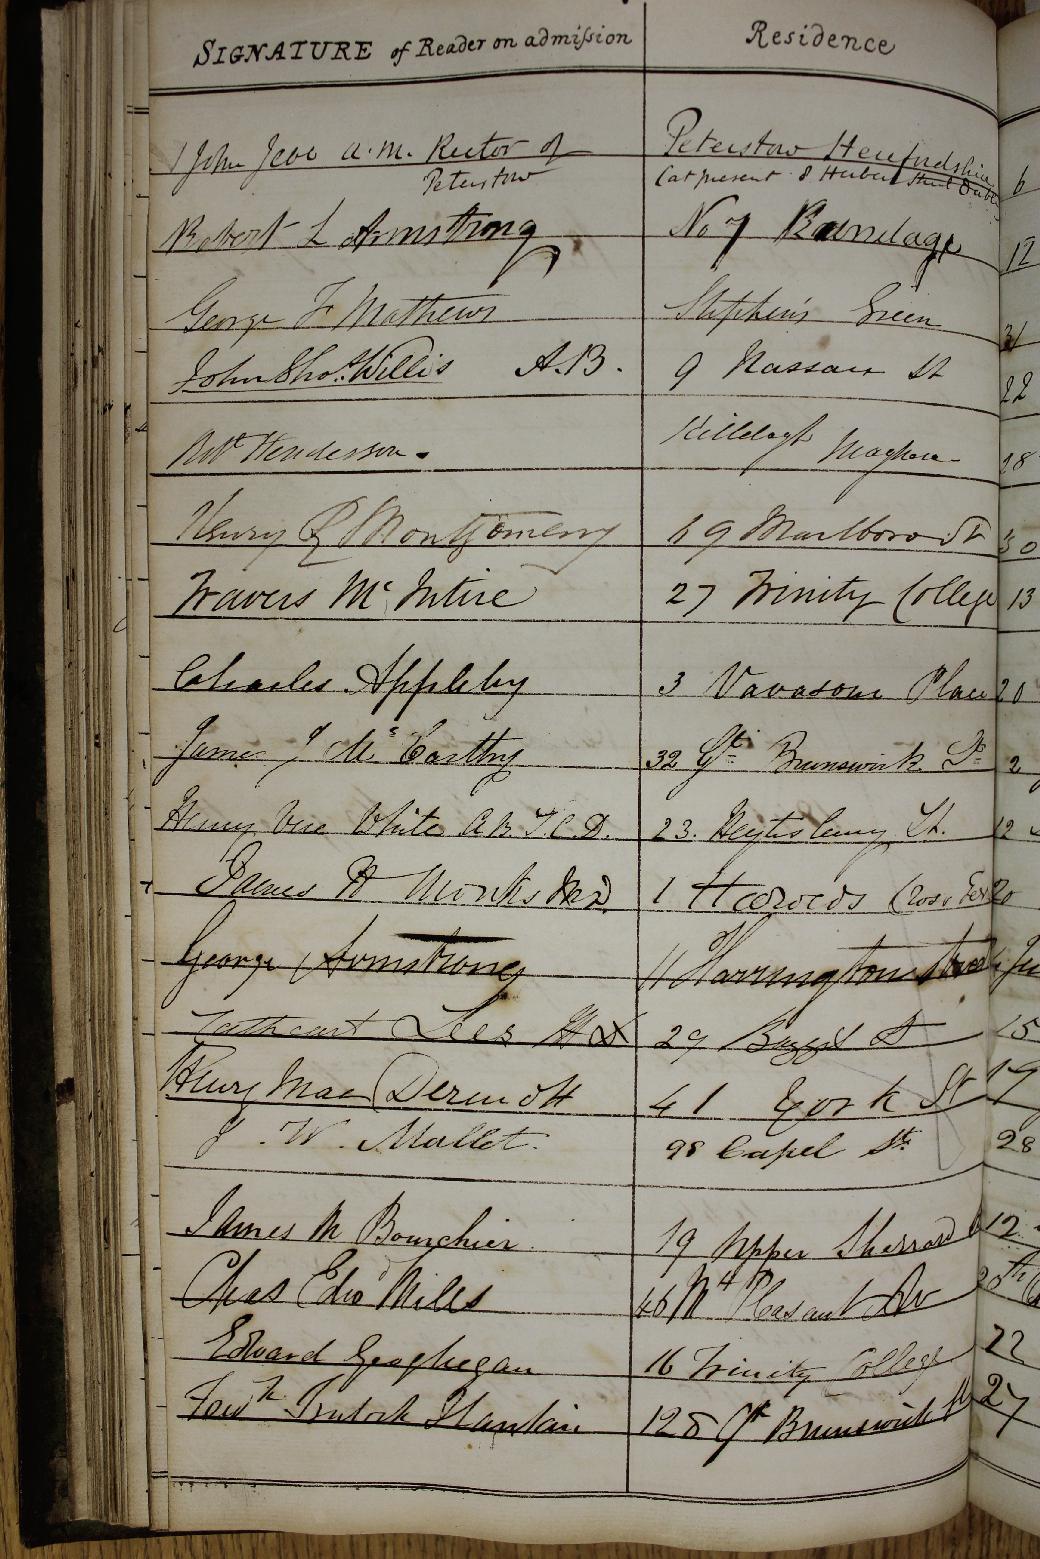 SIGNATURE of Reader on admission Residence
John Jebb A.M. Rector of Peterstow Herefordshire 6
Peterstow (at present 8 Herbert Street
Robert L Armstrong No 7 12
George F Mathews Stephen's Green 31
John Thos. Willis A.B. 9 Nassau St 22
Robt Henderson. Killelagh Maghera 28
Henry R Montgomery 69 Marlboro St 30
Travers McIntire 27 Trinity College 13
Charles Appleby 3 Vavasour Place 20
James J McCarthy 32 Gt Brunswick St 2
Henry Vere White A B T.C.D. 23. Heytesbury St. 12
James H Monks 1 Harolds Cross 20
George Armstrong 11 Harrington Street
Cathcart Lees 29 Baggot St 15
Henry MacDermott 41 York St 17
J. W. Mallet. 98 Capel St. 28
James M Bourchier 19 Upper Sherrard 12
Chas Edwd Mills 46 Mt Pleasant Av 20th
Edward Geoghegan 16 Trinity College 22
128 Gt Brunswick St 27